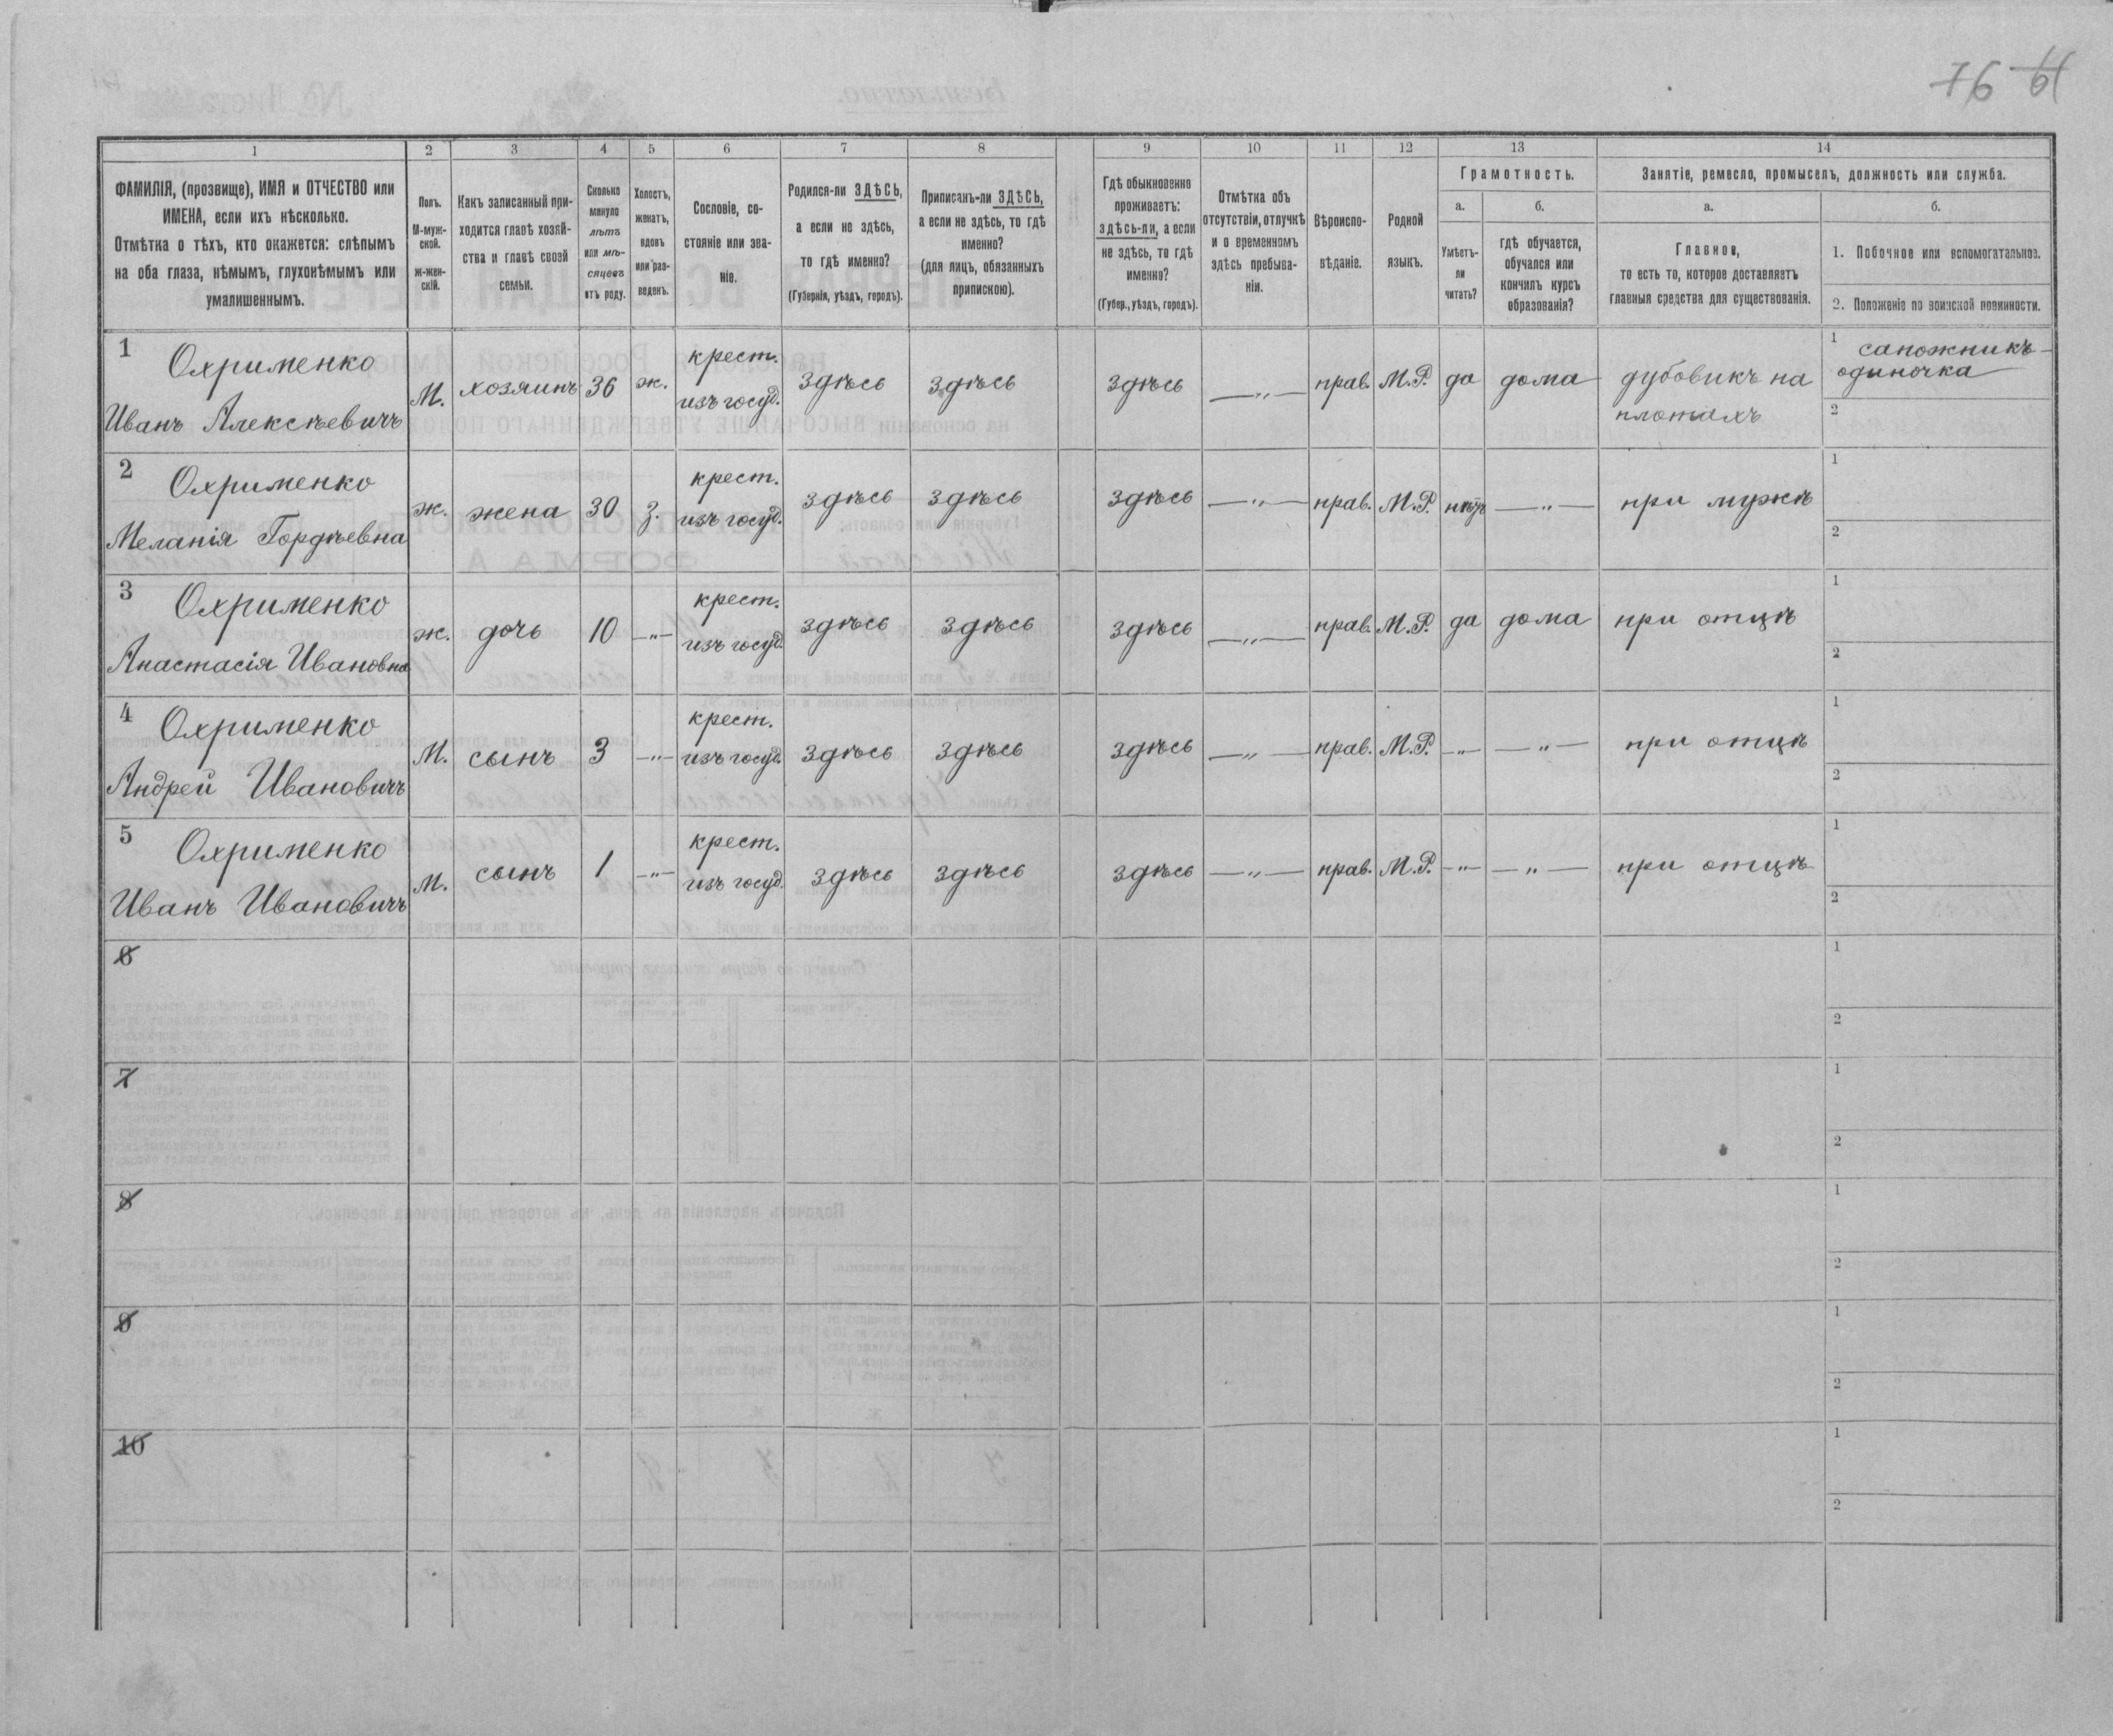 76 61
1 2 3 4 5 6 7 8 9 10 11 12 13 14
ФАМИЛІЯ, (прозвище), ИМЯ и ОТЧЕСТВО или
ИМЕНА, если ихъ нѣсколько.
Отмѣтка о тѣхъ, кто окажется: слѣпымъ
на оба глаза, нѣмымъ, глухонѣмымъ или
умалишеннымъ.
Полъ.
М-муж-
ской.
ж-жен-
скій.
Какъ записанный при-
ходится главѣ хозяй-
ства и главѣ своей
семьи.
Сколько
минуло
лѣтъ
или мѣ-
сяцевъ
отъ роду.
Холостъ,
женатъ,
вдовъ
или раз-
веденъ.
Сословіе, со-
стояніе или зва-
ніе.
Родился-ли ЗДѢСЬ,
а если не здѣсь,
то гдѣ именно?
(Губернія, уѣздъ, городъ).
Приписанъ-ли ЗДѢСЬ,
а если не здѣсь, то гдѣ
именно?
(для лицъ, обязанныхъ
припискою).
Гдѣ обыкновенно
проживаетъ:
здѣсь-ли, а если
не здѣсь, то гдѣ
именно?
(Губер., уѣздъ, городъ).
Отмѣтка объ
отсутствіи, отлучкѣ
и о временномъ
здѣсь пребыва-
ніи.
Вѣроиспо-
вѣданіе.
Родной
языкъ.
Грамотность.
а.
Умѣетъ-
ли
читать?
б.
гдѣ обучается,
обучался или
кончилъ курсъ
образованія?
Занятіе, ремесло, промыселъ, должность или служба.
а.
Главное,
то есть то, которое доставляетъ
главныя средства для существованія.
б.
1. Побочное или вспомогательное.
2. Положеніе по воинской повинности.
1 Охрименко
Иванъ Алексѣевичъ
М.
хозяинъ
36
ж.
крест.
изъ госуд.
здѣсь
здѣсь
здѣсь
—„—
прав.
М.Р.
да
дома
дубовикъ на
плотахъ
1 сапожникъ-
одиночка
2
2 Охрименко
Меланія Гордѣевна
ж.
жена
30
з.
крест.
изъ госуд.
здѣсь
здѣсь
здѣсь
—„—
прав.
М.Р.
нѣтъ
—„—
при мужѣ
1
2
3 Охрименко
Анастасія Ивановна
ж.
дочь
10
—„—
крест.
изъ госуд.
здѣсь
здѣсь
здѣсь
—„—
прав.
М.Р.
да
дома
при отцѣ
1
2
4 Охрименко
Андрей Ивановичъ
М.
сынъ
3
—„—
крест.
изъ госуд.
здѣсь
здѣсь
здѣсь
—„—
прав.
М.Р.
—„—
—„—
при отцѣ
1
2
5 Охрименко
Иванъ Ивановичъ
М.
сынъ
1
—„—
крест.
изъ госуд.
здѣсь
здѣсь
здѣсь
—„—
прав.
М.Р.
—„—
—„—
при отцѣ
1
2
6
1
2
7
1
2
8
1
2
9
1
2
10
1
2